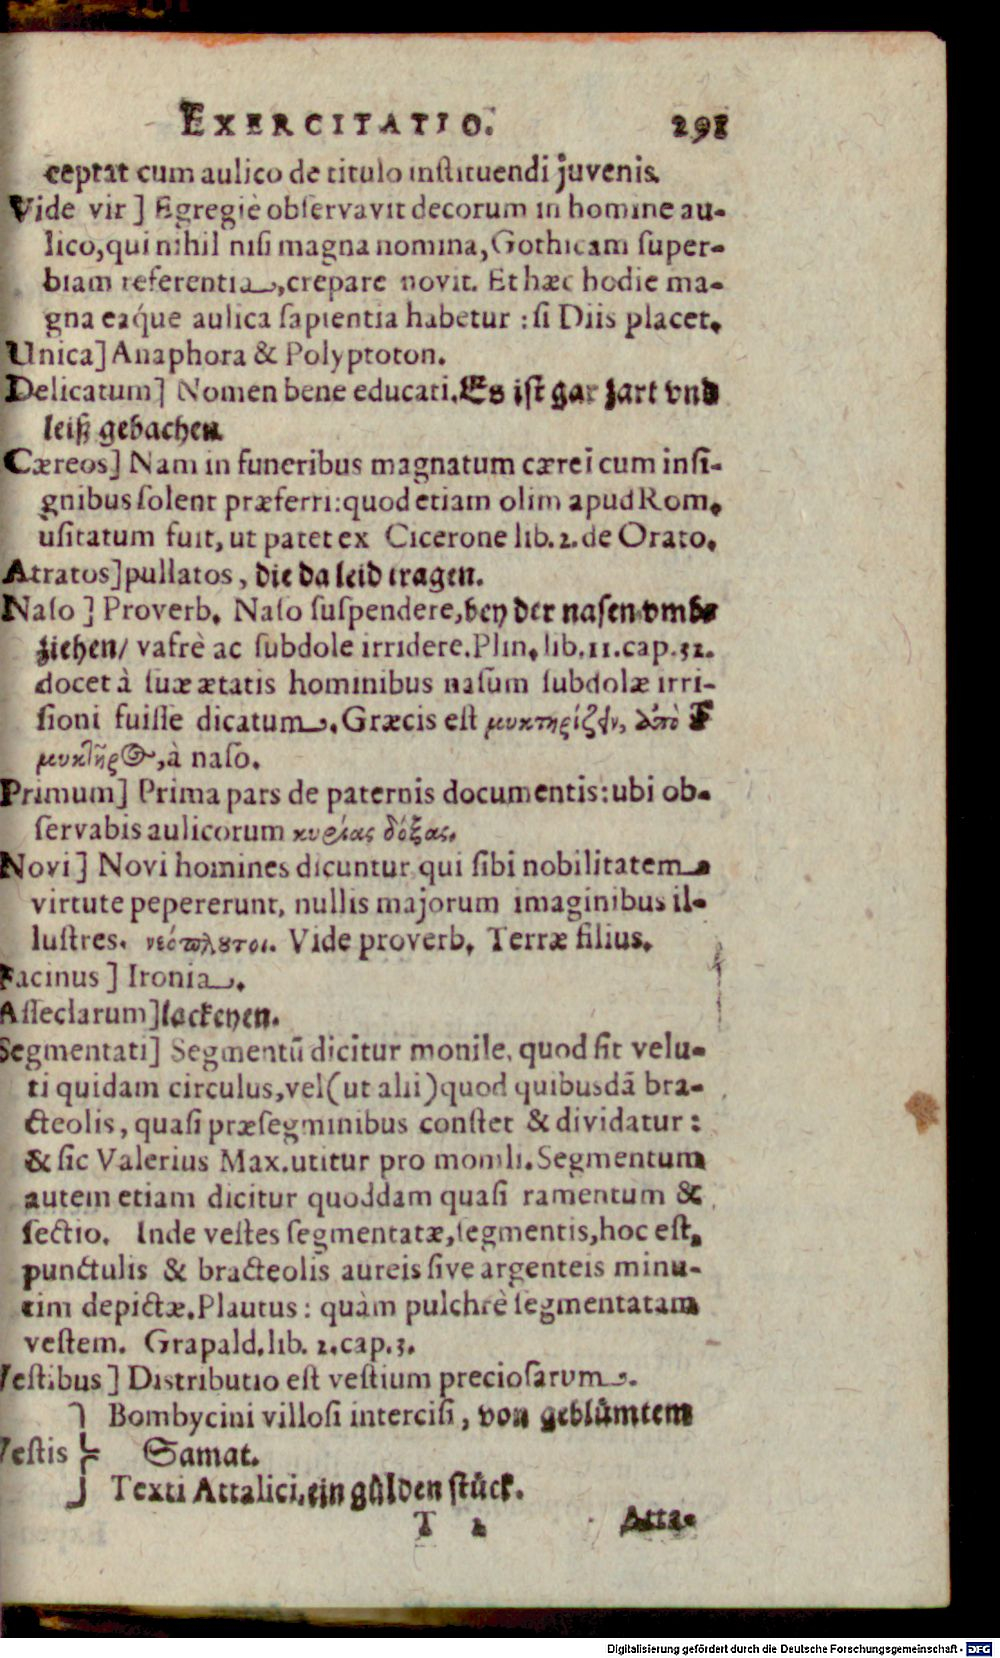 EXERCITATIO. 291
ceptat cum aulico de titulo instituendi juvenis.
Vide vir ] Egregiè observavit decorum in homine au-
lico, qui nihil nisi magna nomina, Gothicam super-
biam referentia, crepare novit. Et hæc hodie ma-
gna eaq́ue aulica sapientia habetur : si Diis placet.
Unica] Anaphora & Polyptoton.
Delicatum] Nomen bene educati. Es ist gar zart vnd
leiß gebachen.
Cæreos] Nam in funeribus magnatum cærei cum insi-
gnibus solent præferri: quod etiam olim apud Rom.
usitatum fuit, ut patet ex Cicerone lib. 2. de Orato.
Atratos] pullatos, die da leid tragen.
Naso ] Proverb. Naso suspendere, bey der nasen vmbe
ziehen/ vafrè ac subdole irridere. Plin. lib. 11. cap. 32.
docet à suæ ætatis hominibus nasum subdolæ irri-
sioni fuisse dicatum. Græcis est μυκτηρίζειν, ἀπὸ τοῦ
μυκτῆρος, à naso.
Primum] Prima pars de paternis documentis: ubi ob-
servabis aulicorum κυρίας δόξας.
Novi ] Novi homines dicuntur qui sibi nobilitatem
virtute pepererunt, nullis majorum imaginibus il-
lustres. νεόπλουτοι. Vide proverb. Terræ filius.
Facinus ] Ironia.
Asseclarum] lackeyen.
Segmentati] Segmentū dicitur monile, quod sit velu-
ti quidam circulus, vel (ut alii) quod quibusdā bra-
cteolis, quasi præsegminibus constet & dividatur:
& sic Valerius Max. utitur pro monili. Segmentum
autem etiam dicitur quoddam quasi ramentum &
sectio. Inde vestes segmentatæ, segmentis, hoc est,
punctulis & bracteolis aureis sive argenteis minu-
tim depictæ. Plautus : quàm pulchrè segmentatam
vestem. Grapald. lib. 2. cap. 3.
Vestibus ] Distributio est vestium preciosarum.
Bombycini villosi intercisi, von geblümtem
Vestis Samat.
Texti Attalici, ein gülden stück.
T 2 Atta-
Digitalisierung gefördert durch die Deutsche Forschungsgemeinschaft - DFG